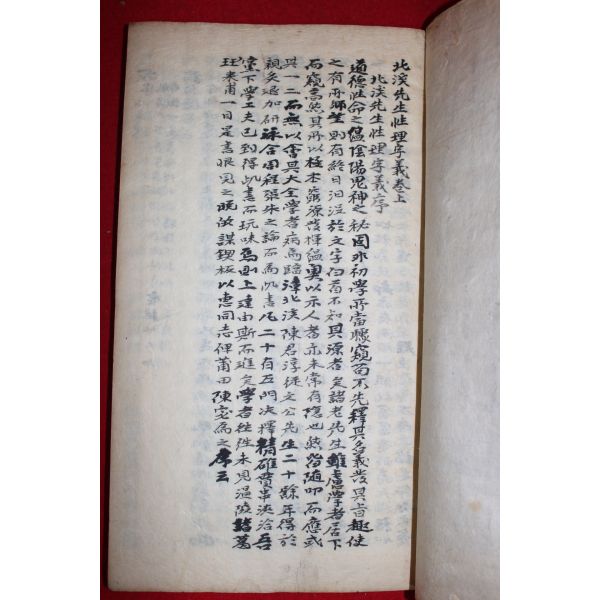 北溪先生性理字義卷上
北溪先生性理字義序
道德性命之蘊陰陽鬼神之秘固非初學所當驟窺苟不先釋其名義發其旨趣使
之有所師望則有終日汩泣於文字白首不知其源者矣諸老先生雖慮學者居下
而窺高然其所以極本窮源發揮蘊奧以示人者亦未常有隱也然皆隨叩而應或
其一二而無以會其大全學者病焉臨漳北溪陳君淳從文公先生二十餘年得於
親炙退加研詠合周程張朱之論而爲此書凡二十有五門決擇精確貫串浹洽吾
堂下學工夫已到得此書而玩味焉則上達由斯而進矣學者往往未見溫陵諸葛
珏來甫一日是書眼見之旣敬謀鋟板以惠同志俾莆田陳宓爲之序云